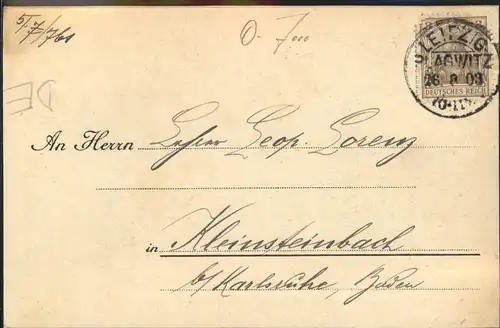 LEIPZIG
PLAGWITZ
26 8 03
10-11V.
DEUTSCHES REICH
DE
An Herrn Lehrer Leop. Lorenz
in Kleinsteinbach
b/Karlsruhe, Baden